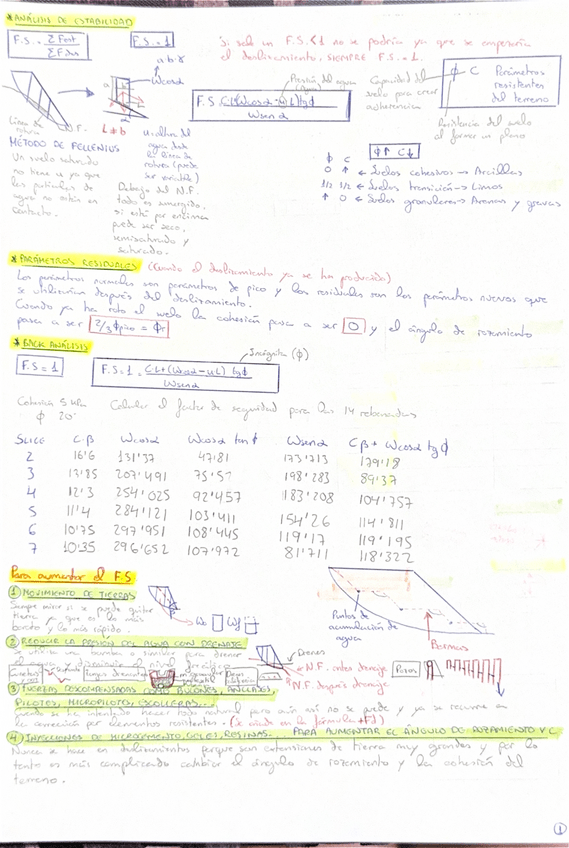 *ANÁLISIS DE ESTABILIDAD
F.S. = ΣFest / ΣFdes
F.S. = 1
Si sale un F.S. < 1 no se podría ya que se empezaría
el deslizamiento, SIEMPRE F.S. = 1.
a·b·γ
Wcosα
a
b
α
L≠b
Línea de
rotura
N.F.
Presión del agua
F.S. = CL+(Wcosα-uL)tgϕ / Wsenα
Capacidad del
suelo para crear
adherencia
ϕ C Parámetros
resistentes
del terreno
Resistencia del suelo
al formar un plano
u: altura del
agua desde
la línea de
rotura (puede
ser variable)
MÉTODO DE FELLENIUS
Un suelo saturado
no tiene u ya que
las partículas de
agua no están en
contacto.
Debajo del N.F.
todo es sumergido.
si está por encima
puede ser seco,
semisaturado y
saturado.
ϕ↑ C↓
ϕ C
0 ↑ ← Suelos cohesivos → Arcillas
1/2 1/2 ← Suelos transición → Limos
↑ 0 ← Suelos granulares → Arenas y gravas
*PARÁMETROS RESIDUALES (Cuando el deslizamiento ya se ha producido)
Los parámetros normales son parámetros de pico y los residuales son los parámetros nuevos que
se utilizarían después del deslizamiento.
Cuando ya ha roto el suelo la cohesión pasa a ser 0 y el ángulo de rozamiento
pasa a ser 2/3 ϕpico = ϕr
*BACK ANÁLISIS
Incógnita (ϕ)
F.S = 1
F.S = 1 = CL+(Wcosα-uL) tgϕ / Wsenα
Cohesión 5 kPa Calcular el factor de seguridad para las 14 rebanadas
ϕ 20°
SLICE C·β Wcosα Wcosα tanϕ Wsenα Cβ + Wcosα tgϕ
2 16'6 131'37 47'81 173'713 179'18
3 13'85 207'491 75'52 198'283 89'37
4 12'3 254'025 92'457 183'208 104'757
5 11'4 284'121 103'411 154'26 114'811
6 10'75 297'951 108'445 119'17 119'195
7 10'35 296'652 107'972 81'711 118'322
Para aumentar el F.S.
① MOVIMIENTO DE TIERRAS
Siempre mirar si se puede quitar
tierra ya que es lo más
barato y lo más rápido.
Puntos de
acumulación de
agua
Bermas
② REDUCIR LA PRESIÓN DEL AGUA CON DRENAJE
Drenes
N.F. antes drenaje
N.F. después drenaje
Pozos
③ FUERZAS DESCOMPENSADAS COMO BULONES, ANCLAJES,
PILOTES, MICROPILOTES, ESCOLLERAS...
la corrección por elementos resistentes. (se añade en la fórmula +Fd)
④ INYECCIONES DE MICROCEMENTO, GELES, RESINAS... PARA AUMENTAR EL ÁNGULO DE ROZAMIENTO Y C
Nunca se hace en deslizamientos porque son extensiones de tierra muy grandes y por lo
tanto es más complicado cambiar el ángulo de rozamiento y la cohesión del
terreno.
①